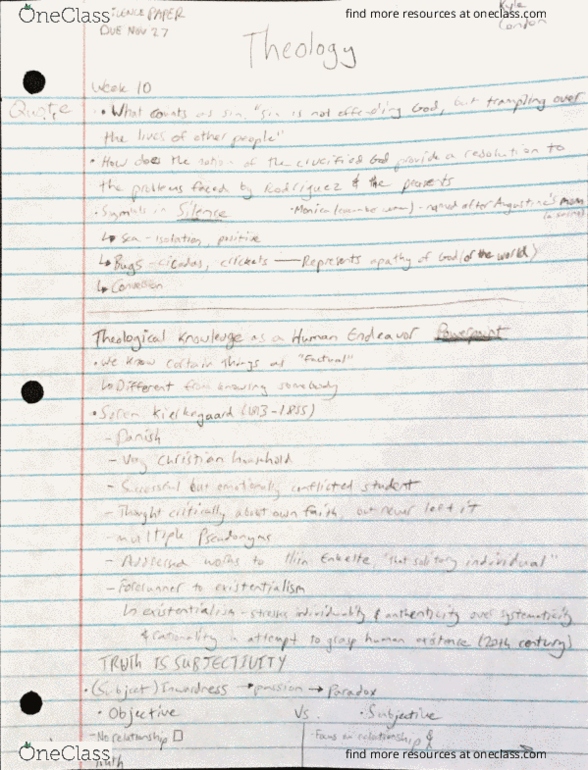 OneClass
SILENCE PAPER
DUE NOV 27
find more resources at oneclass.com
Kyle
Theology
Week 10
Quote
• What counts as sin, "sin is not offending God, but trampling over
the lives of other people"
• How does the notion of the crucified God provide a resolution to
the problems faced by Rodriguez & the peasants
• Symbols in Silence
• Monica - named after Augustine's mom
↳ Sea - isolation, positive
↳ Bugs - cicadas, crickets — Represents apathy of God (of the world)
↳ Confession
Theological Knowledge as a Human Endeavor Powerpoint
• We know certain things as "factual"
↳ Different from knowing somebody
• Soren Kierkegaard (1813-1855)
- Danish
- Very Christian household
- Successful but emotionally conflicted student
- Thought critically about own faith, but never left it
- multiple Pseudonyms
- Addressed works to Hiin Enkelte, "that solitary individual"
- Forerunner to existentialism
↳ existentialism - stresses individuality & authenticity over systematicity
& rationality in attempt to grasp human existence (20th century)
TRUTH IS SUBJECTIVITY
• (Subject) Inwardness → passion → Paradox
• Objective vs. • Subjective
- No relationship
- Focus on relationship &
OneClass
find more resources at oneclass.com
Truth